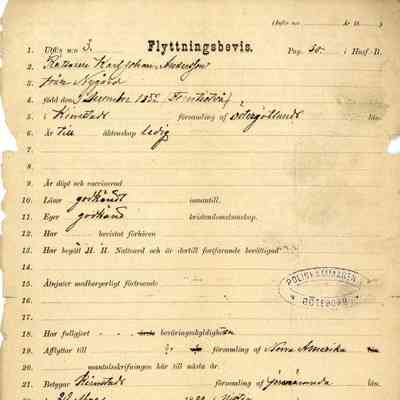 (Infört n:o År 18
1. Utfl.s n:o 3. Flyttningsbevis. Pag. 30. i Husf.-B.
2. Karl Johan Andersson
3. från Nygård
4. född den 9 December 1858
5. i Rinstads församling af Östergötlands län.
6. Är till äktenskap ledig
7.
8.
9. Är döpt och vaccinerad
10. Läser godkändt innantill.
11. Eger godkänd kristendomskunskap.
12. Har bevistat förhören
13. Har begått H. H. Nattvard och är dertill fortfarande berättigad
14.
15. Åtnjuter medborgerligt förtroende
16.
17.
18. Har fullgjort beväringsskyldigheten
19. Afflyttar till församling af Norra Amerika län
20. mantalsskrifningen här till nästa år.
21. Betygar Rinstads församling
POLISKAMMAREN
GÖTEBORG